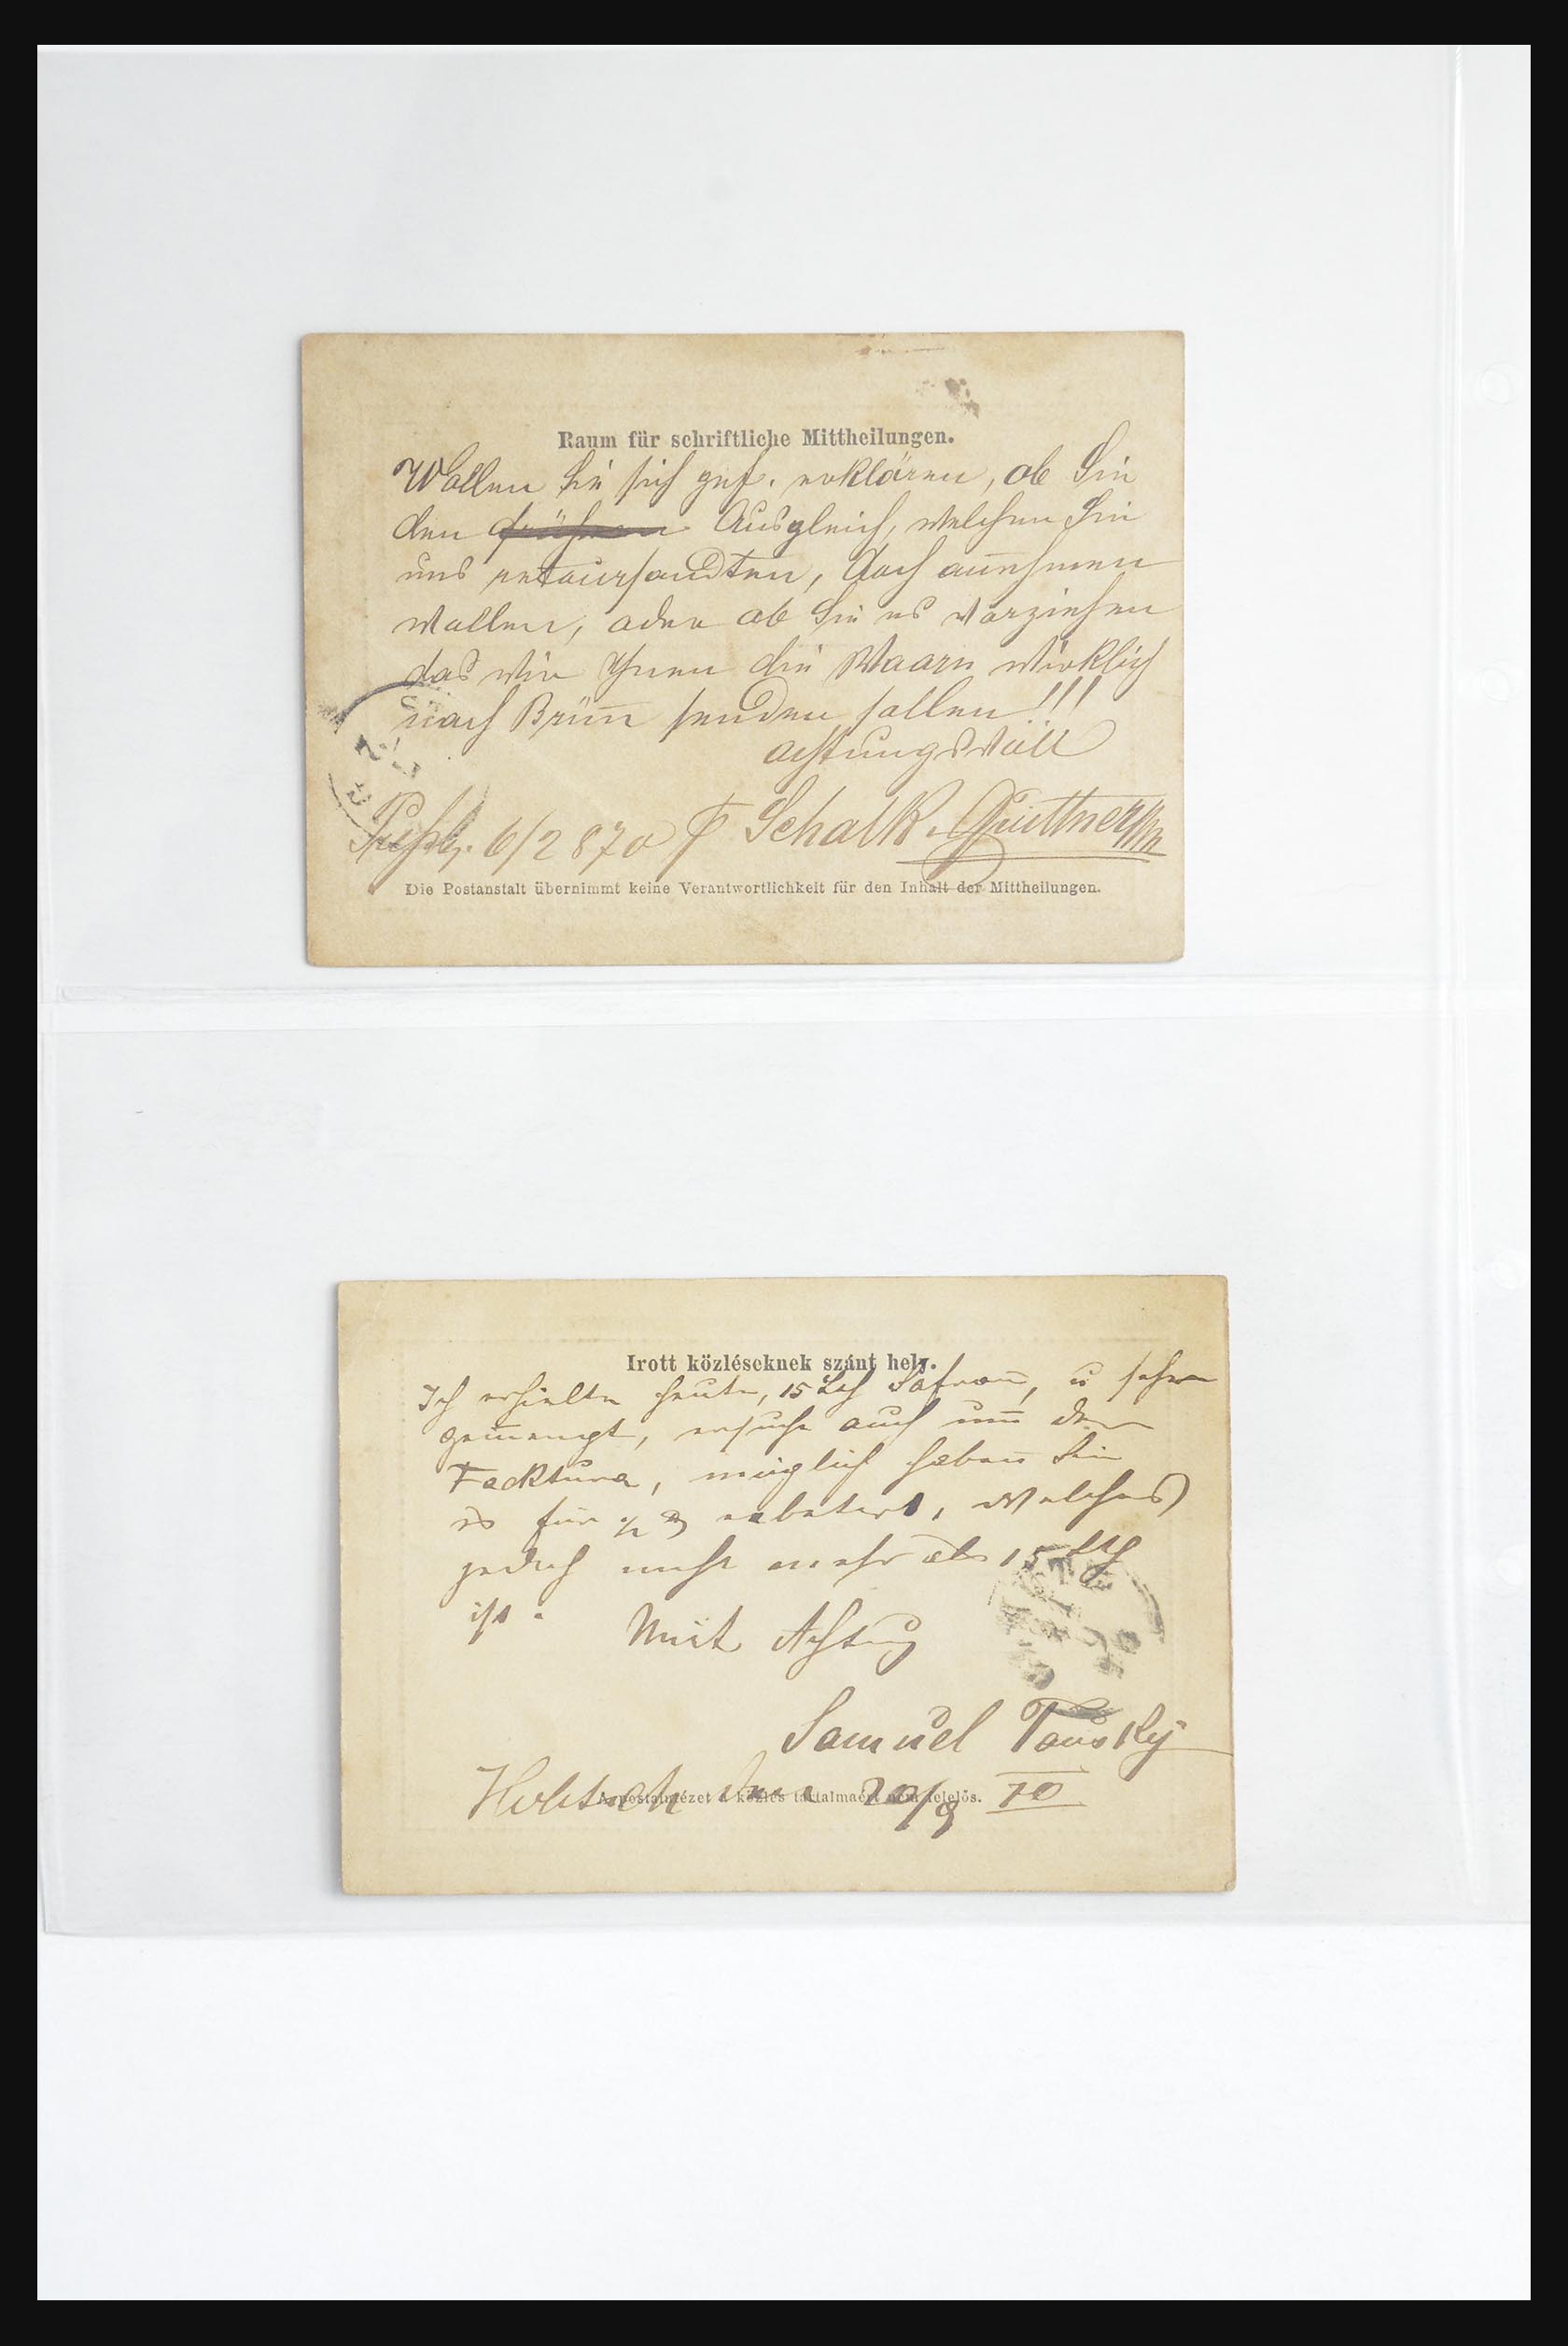 Raum für schriftliche Mittheilungen.
Wollen Sie sich gef. erklären, ob Sie
den früheren Ausgleich, welchen Sie
uns retoursandten, doch annehmen
wollen, oder ob Sie es vorziehen
das wir Ihnen die Waare wirklich
nach Brünn senden sollen!!!
achtungsvoll
6/2 870 Schalk
Die Postanstalt übernimmt keine Verantwortlichkeit für den Inhalt der Mittheilungen.
Irott közléseknek szánt hely.
Ich erhielte heute, 15 Lth Safran, u
gemengt, ersuche auch um der
Facktura, möglich haben Sie
es für 1/2 welches
jedoch nicht mehr als 15 Lth
ist.
Mit Achtung
Samuel Tausky
Holitsch 20/9 70
A postaintézet a közlés tartalmaért nem felelős.